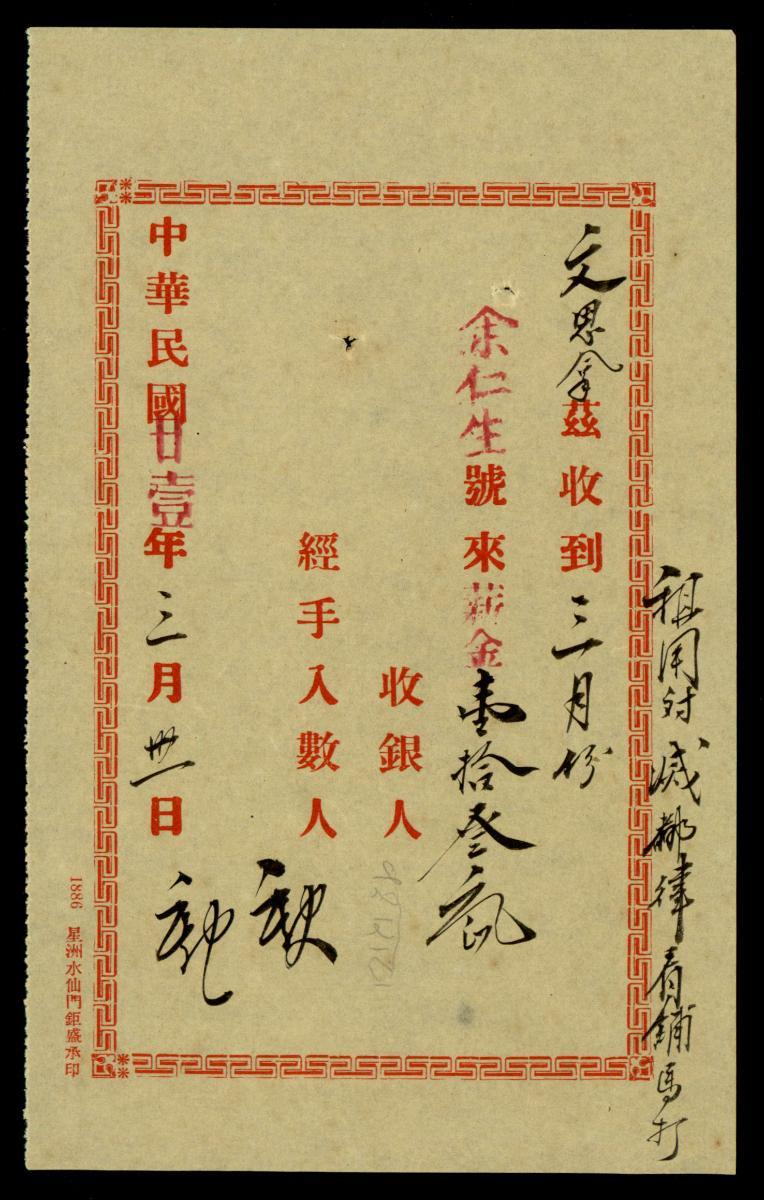 租用對減都律看鋪馬打
文思拿茲收到三月份
余仁生號來薪金壹拾叁
收銀人
經手入數人
中華民國廿壹年三月卅一日
1886 星洲水仙門鉅盛承印